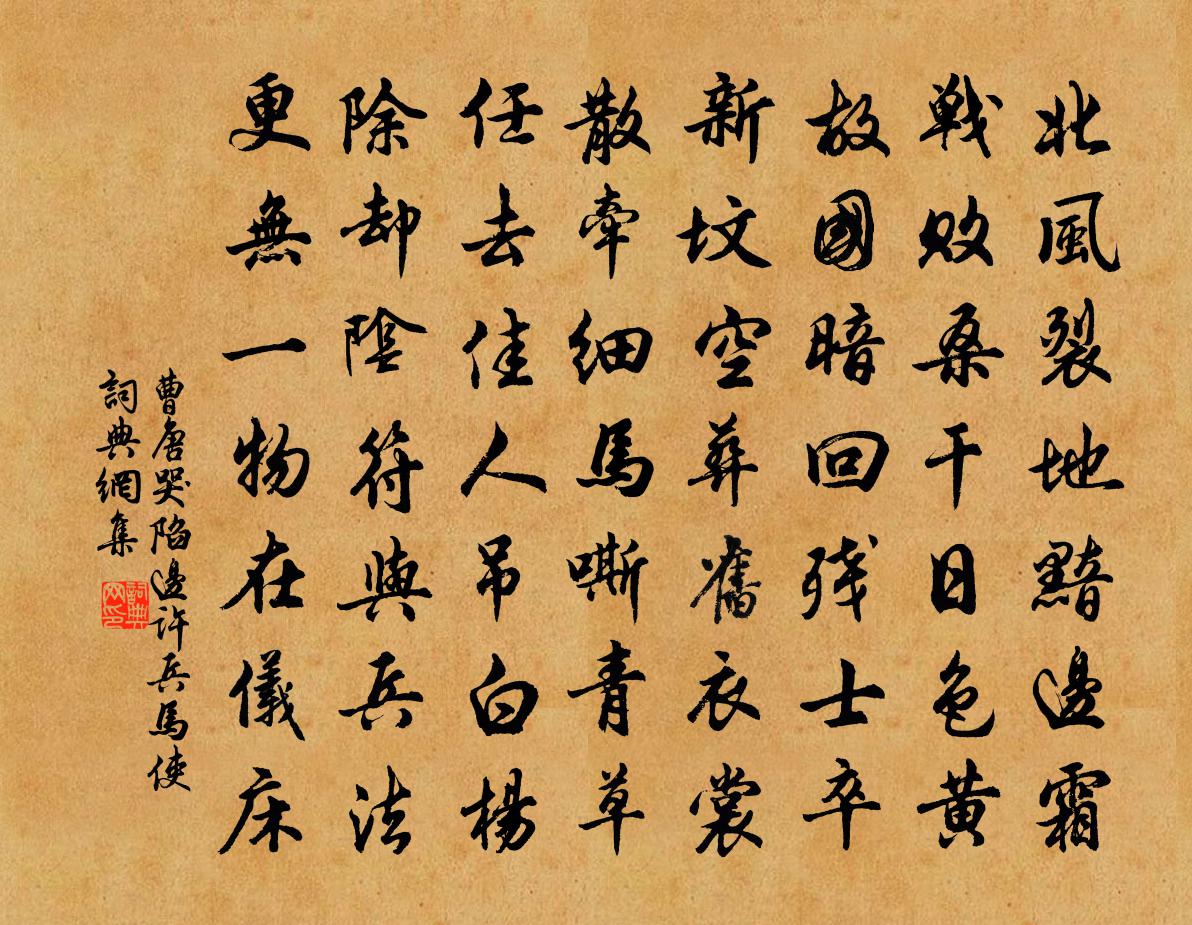 北風裂地黯邊霜
戰敗桑干日色黃
故國暗回殘士卒
新墳空葬舊衣裳
散牽細馬嘶青草
任去佳人吊白楊
除卻陰符與兵法
更無一物在儀床
曹唐哭陷邊許兵馬使
詞典網集
詞典网印